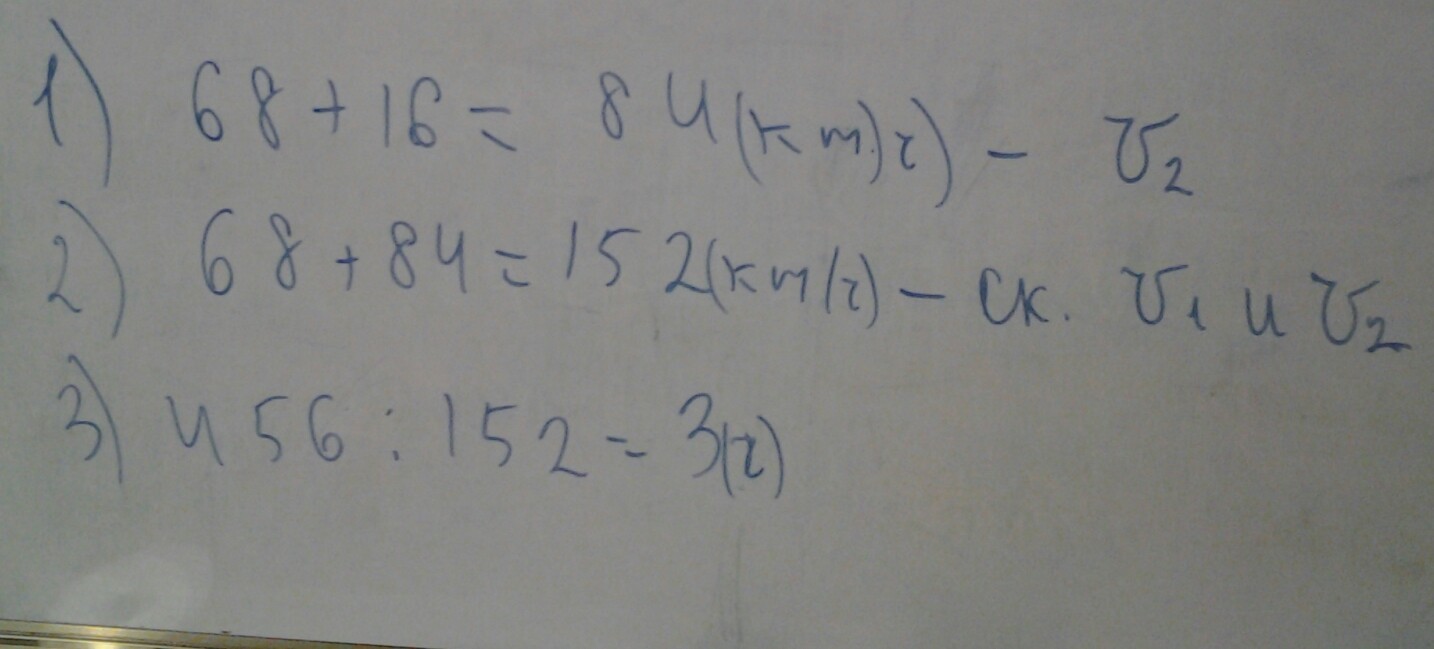 1) 68 + 16 = 84 (км/ч) - V₂
2) 68 + 84 = 152 (км/ч) - ск. V₁ и V₂
3) 456 : 152 = 3 (ч)